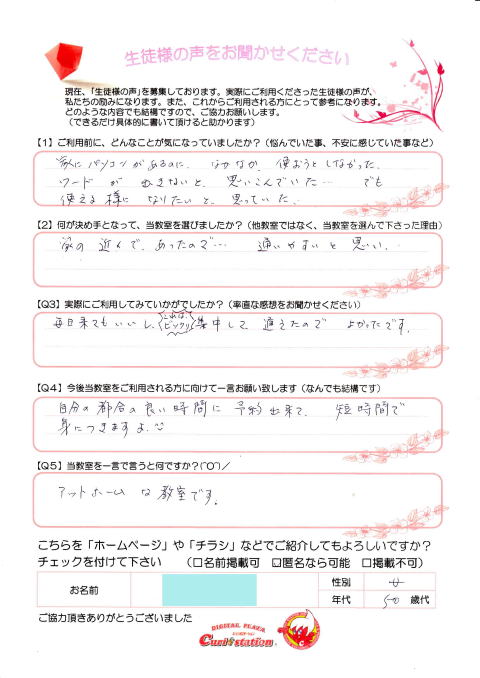 生徒様の声をお聞かせください
現在、「生徒様の声」を募集しております。実際にご利用くださった生徒様の声が、
私たちの励みになります。また、これからご利用される方にとって参考になります。
どのような内容でも結構ですので、ご協力お願いします。
（できるだけ具体的に書いて頂けると助かります）
【1】ご利用前に、どんなことが気になっていましたか？（悩んでいた事、不安に感じていた事など）
家にパソコンがあるのに、なかなか、使おうとしなかった。
ワードが出きないと、思いこんでいた… でも
使える様になりたいと、思っていた。
【2】何が決め手となって、当教室を選びましたか？（他教室ではなく、当教室を選んで下さった理由）
家の近くで、あったので… 通いやすいと思い、
【Q3】実際にご利用してみていかがでしたか？（率直な感想をお聞かせください）
毎日来てもいいし、これは、ビックリ 集中して通えたのでよかったです。
【Q4】今後当教室をご利用される方に向けて一言お願い致します（なんでも結構です）
自分の都合の良い時間に予約出来て、短時間で
身につきますよ。
【Q5】当教室を一言で言うと何ですか？(^O^)／
アットホームな教室です。
こちらを「ホームページ」や「チラシ」などでご紹介してもよろしいですか？
チェックを付けて下さい （□名前掲載可 ☑匿名なら可能 □掲載不可）
お名前 性別 女
年代 50 歳代
ご協力頂きありがとうございました
DIGITAL PLAZA
Curio station